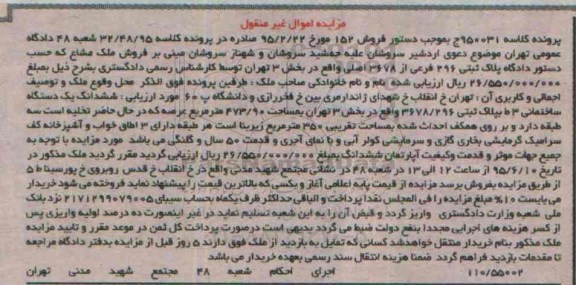 مزایده اموال غیر منقول
پرونده کلاسه ۹۵۰۰۳۱ج بموجب دستور فروش ۱۵۲ مورخ ۹۵/۲/۲۲ صادره در پرونده کلاسه ۳۲/۴۸/۹۵ شعبه ۴۸ دادگاه
عمومی تهران موضوع دعوی اردشیر سروشان علیه جمشید سروشان و شهناز سروشان مبنی بر فروش ملک مشاع که حسب
دستور دادگاه پلاک ثبتی ۲۹۶ فرعی از ۳۶۷۸ اصلی واقع در بخش ۳ تهران توسط کارشناس رسمی دادگستری بشرح ذیل بمبلغ
۲۶/۵۵۰/۰۰۰/۰۰۰ ریال ارزیابی شده نام و نام خانوادکی صاحب ملک : طرفین پرونده فوق الذکر محل وقوع ملک و توصیف
اجمالی و کاربری آن : تهران خ انقلاب خ شهدای ژاندارمری بین خ فخررازی و دانشگاه پ ۶۰ مورد ارزیابی : ششدانگ یک دستگاه
ساختمانی ۳ط بپلاک ثبتی ۳۶۷۸/۲۹۶ واقع در بخش ۳ تهران بمساحت ۴۷۳/۹۰ مترمربع عرصه که در حال حاضر تخلیه است سه
طبقه دارد و بر روی همکف احداث شده بمساحت تقریبی ۳۵۰ مترمربع زیربنا است هر طبقه دارای ۳ اطاق خواب و آشپزخانه کف
سرامیک گرمایشی بخاری گازی و سرمایشی کولر آبی و با نمای آجری و قدمت ۵۰ سال و کلنگی می باشد مورد مزایده با توجه به
جمیع جهات موثر و قدمت وکیفیت آپارتمان ششدانگ بمبلغ ۲۶/۵۵۰/۰۰۰/۰۰۰ ریال ارزیابی گردید مقرر گردید ملک مذکور در
تاریخ ۹۵/۶/۱۰ از ساعت ۱۲ الی ۱۳ در شعبه ۴۸ در نشانی مجتمع شهید مدنی واقع در خ انقلاب خ قدس روبروی خ پورسینا ط ۵
از طریق مزایده بفروش برسد مزایده از قیمت پایه اعلامی آغاز و بکسی که بالاترین قیمت را پیشنهاد نماید فروخته می شود خریدار
می بایست ۱۰% مبلغ مزایده را فی المجلس نقدا پرداخت و الباقی حداکثر ظرف یکماه بحساب سیبای ۲۱۷۱۲۹۹۰۷۹۰۰۵ نزد بانک
ملی شعبه وزارت دادگستری واریز گردد و قبض آن را به این شعبه تسلیم نماید در غیر اینصورت ده درصد اولیه واریزی پس
از کسر هزینه های اجرایی مجددا بنفع دولت ضبط می گردد بدیهی است درصورت پرداخت کل ثمن در موعد مقرر و تایید مزایده
ملک مذکور بنام خریدار منتقل خواهدشد کسانی که تمایل به بازدید از ملک فوق دارند ۵ روز قبل از مزایده بدفتر دادگاه مراجعه
تا مقدمات بازدید فراهم گردد ضمنا هزینه انتقال سند رسمی بعهده خریدار می باشد
۱۱۰/۵۵۰۰۲ اجرای احکام شعبه ۴۸ مجتمع شهید مدنی تهران